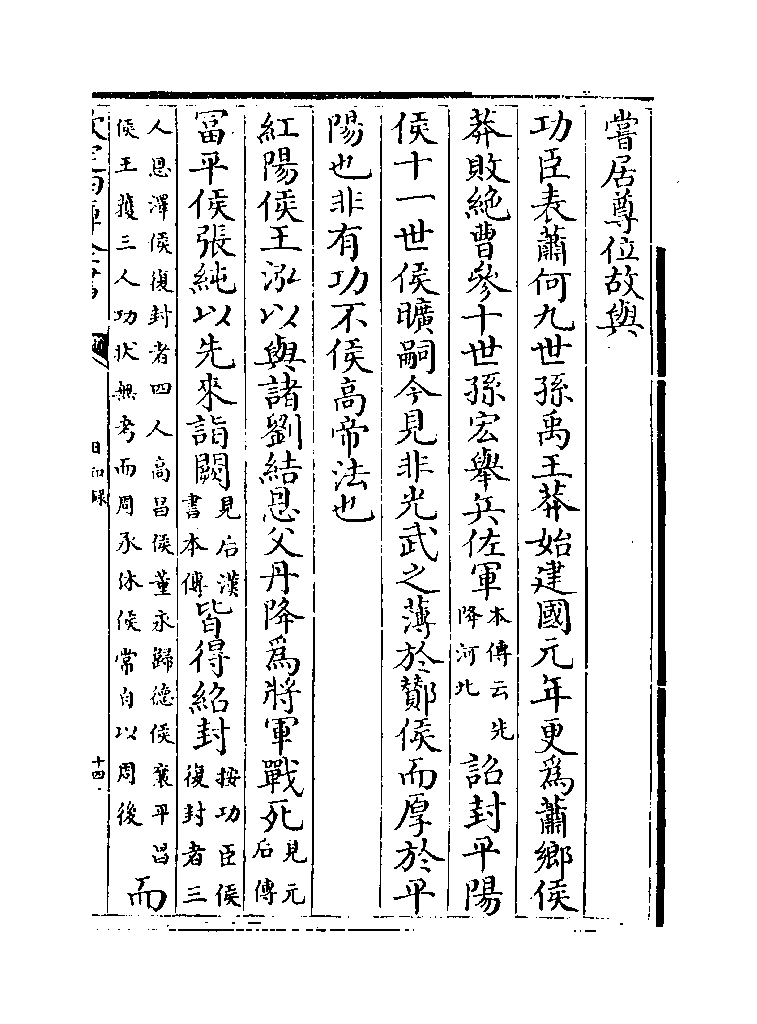 嘗居尊位故與
功臣表蕭何九世孫禹王莽始建國元年更為蕭鄉侯
莽敗絶曹參十世孫宏舉兵佐軍本傳云先降河北詔封平陽
侯十一世侯曠嗣今見非光武之薄於酇侯而厚於平
陽也非有功不侯高帝法也
紅陽侯王泓以與諸劉結恩父丹降為將軍戰死見元后傳
冨平侯張純以先來詣闕見后漢書本傳皆得紹封按功臣侯復封者三
人恩澤侯復封者四人高昌侯董永歸德侯襄平昌侯王護三人功狀無考而周承休侯常自以周後而
欽定四庫全書
日知錄
十四